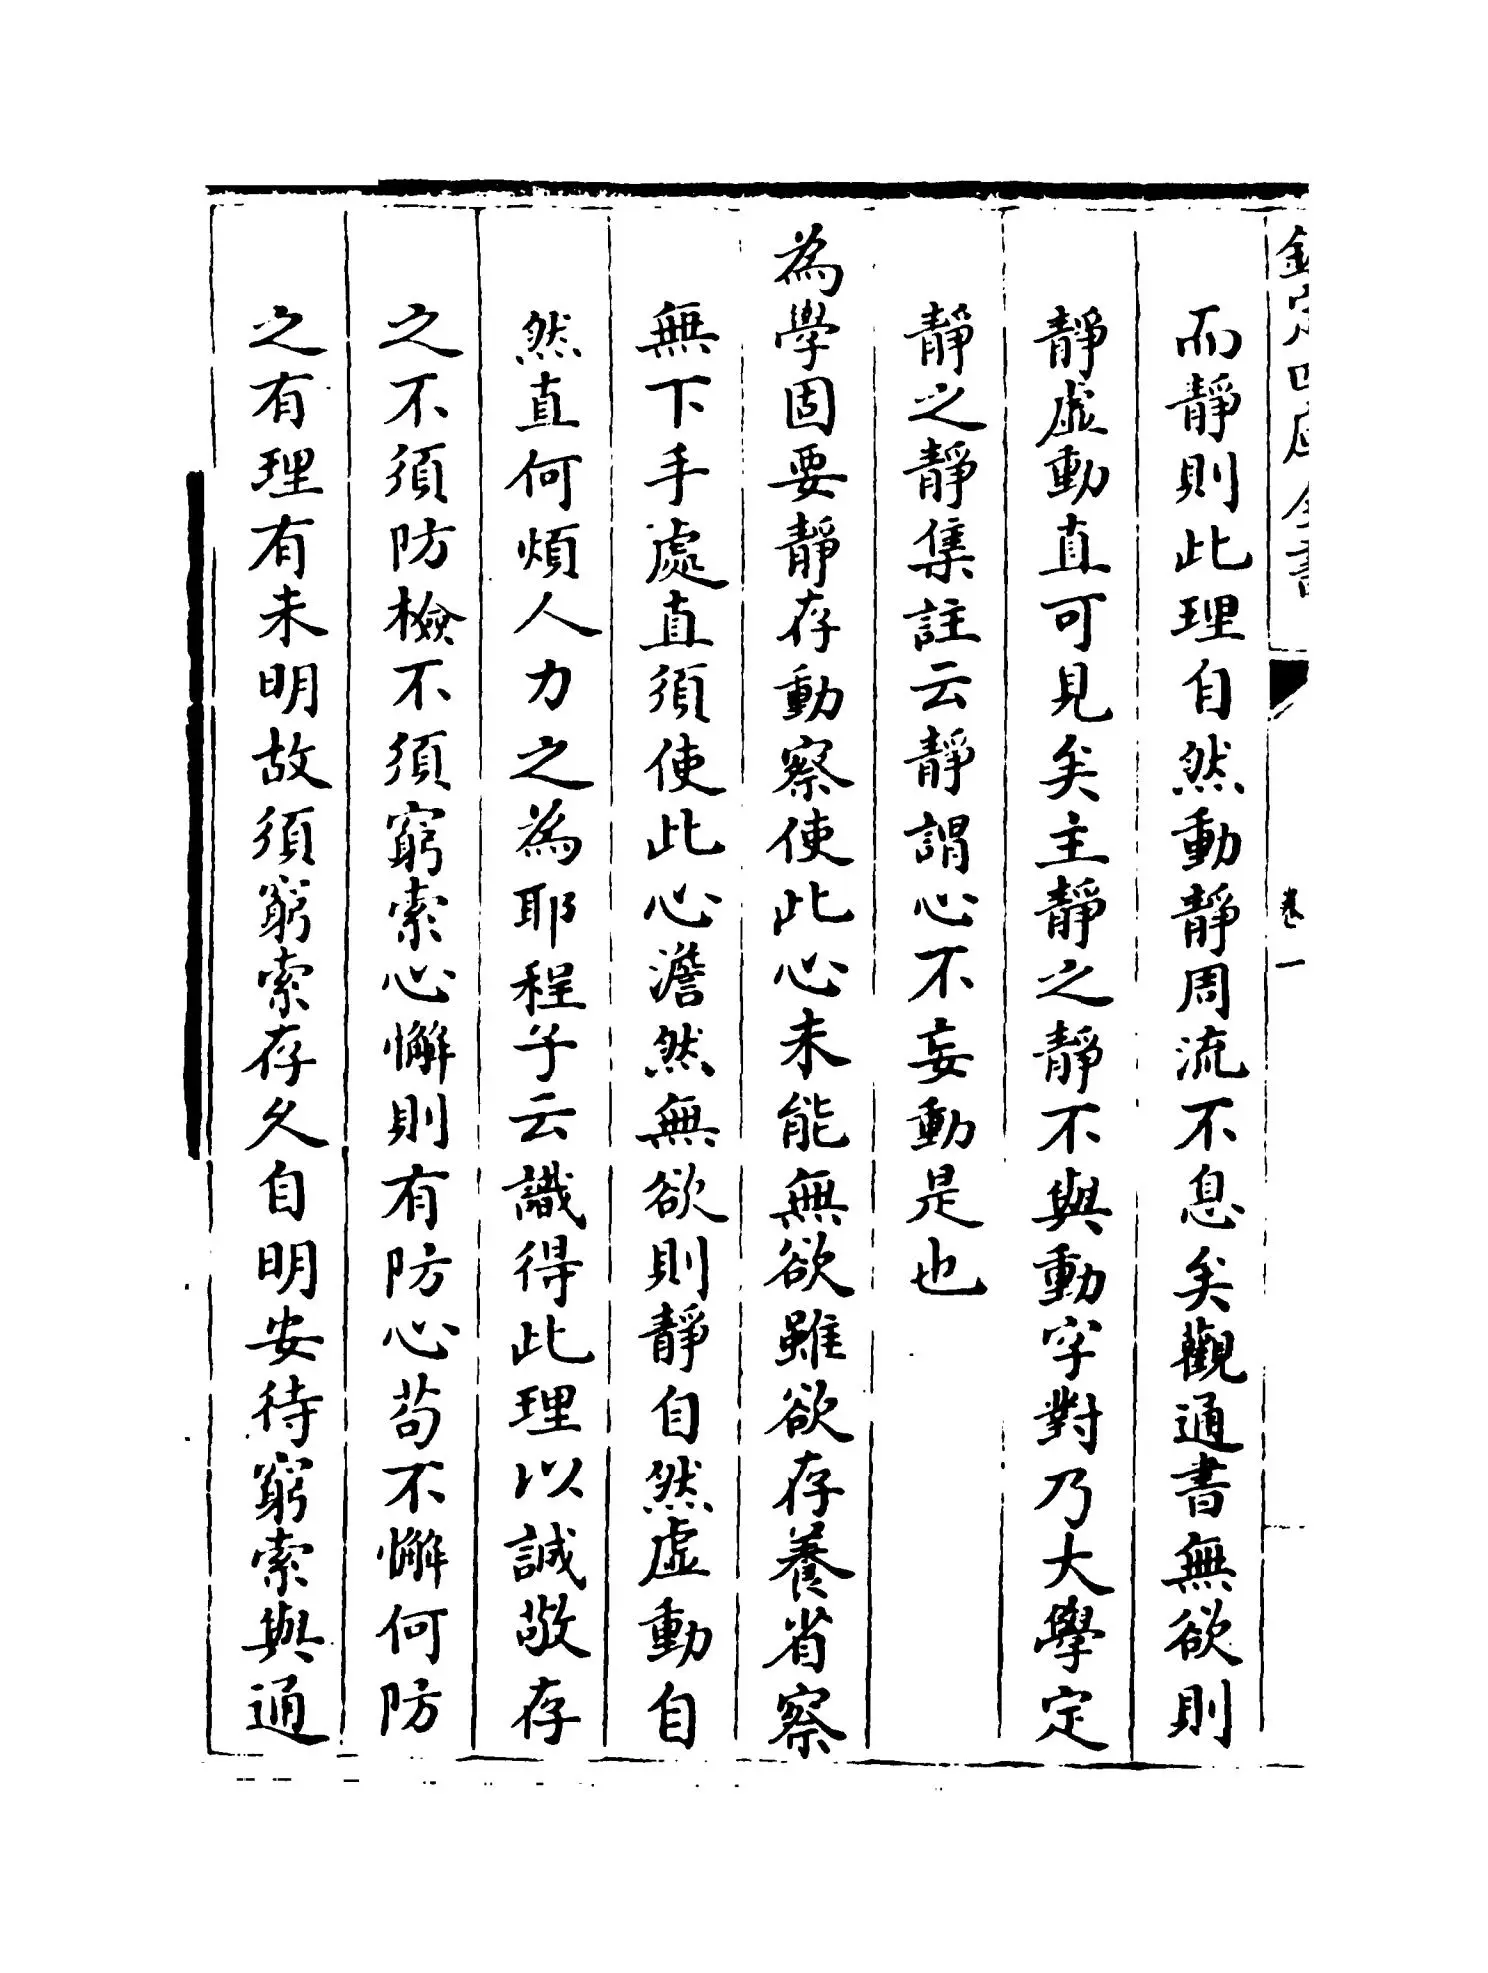 欽定四庫全書
卷一
而靜則此理自然動靜周流不息矣觀通書無欲則
靜虛動直可見矣主靜之靜不與動字對乃大學定
靜之靜集註云靜謂心不妄動是也
為學固要靜存動察使此心未能無欲雖欲存養省察
無下手處直須使此心澹然無欲則靜自然虛動自
然直何煩人力之為耶程子云識得此理以誠敬存
之不須防檢不須窮索心懈則有防心苟不懈何防
之有理有未明故須窮索存久自明安待窮索與通